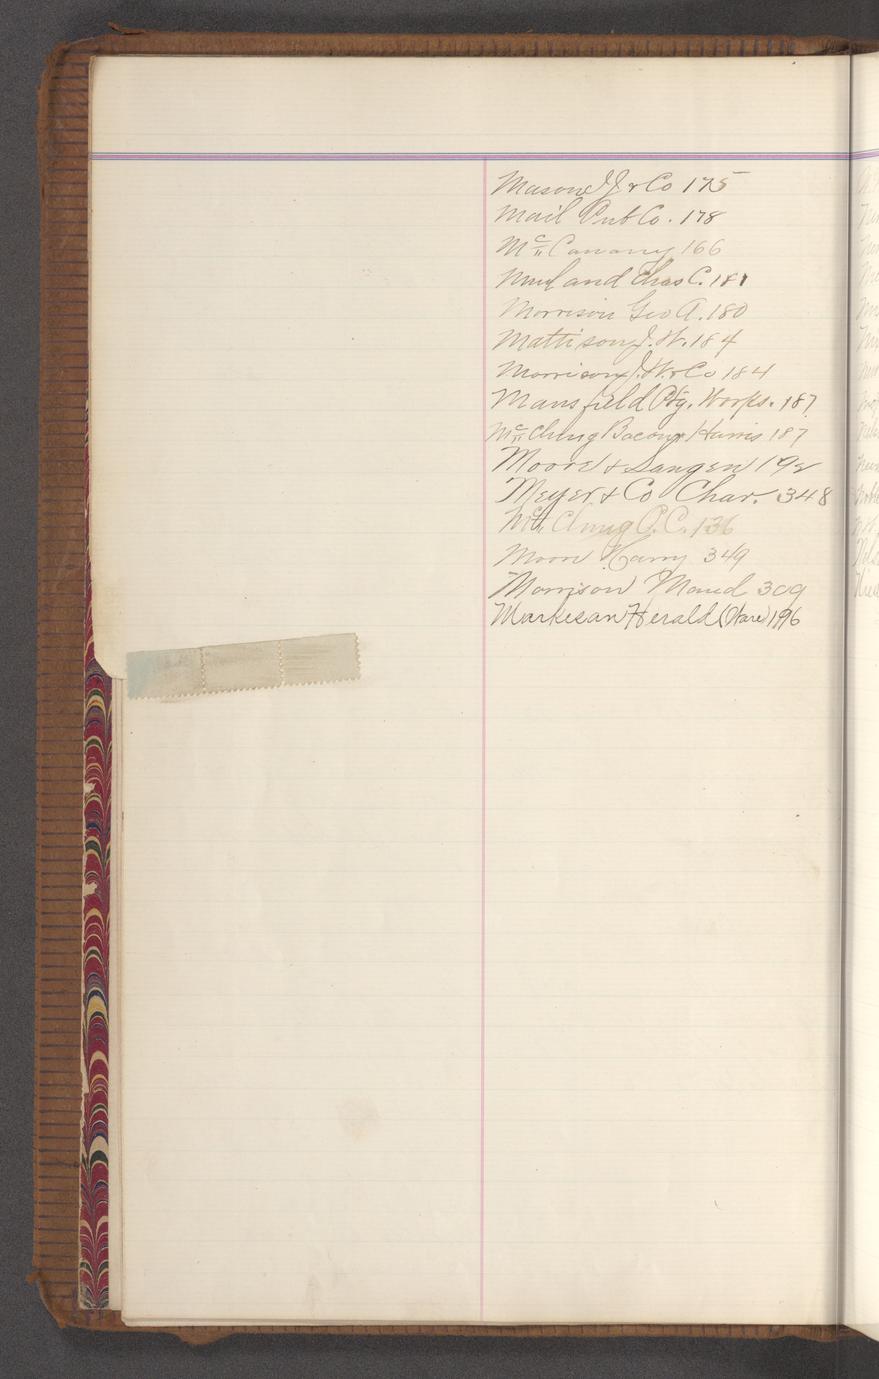 Mason J. J. & Co 175
Mail Pub Co. 178
Mc 166
and Chas C. 181
Morrison Geo A. 180
Mattison J. W. 184
Morrison J. W. & Co 184
Mansfield Ptg. Works. 187
McClung Bacon & Harris 187
Moore & Langen 192
Meyer & Co Chas. 348
McClung C. C. 136
Moore Harry 349
Morrison Maud 309
Markesan Herald (Ware) 196